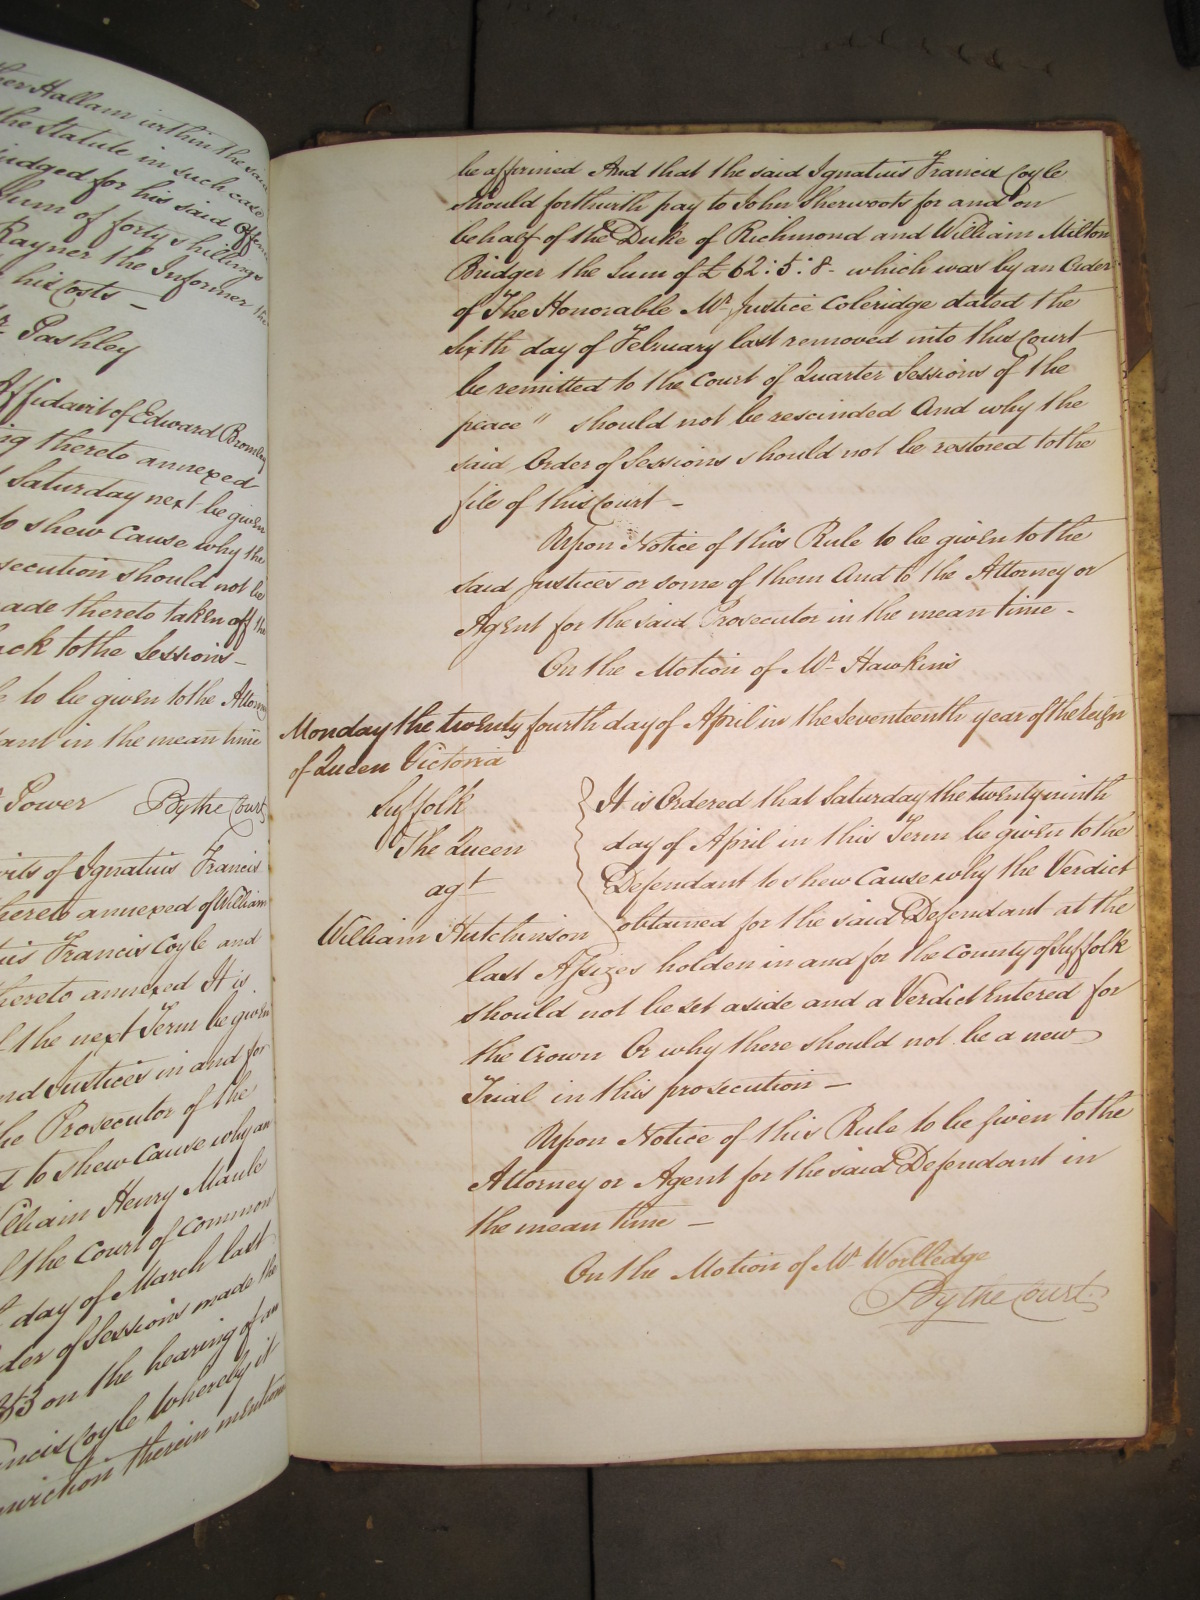 ther Hallam within the said
the Statute in such case
judged for his said Offen
Sum of forty shillings
Rayner the Informer the
his Costs —
Pashley
Affidavit of Edward Bromley
ng thereto annexed
Saturday next be given
to shew Cause why the
secution should not be
ade thereto taken off the
ack to the Sessions —
to be given to the Attorney
dant in the mean time
Power By the Court
vits of Ignatius Francis
hereto annexed of William
ius Francis Coyle and
thereto annexed It is
f the next Term be given
nd Justices in and for
he Prosecutor of the
to shew Cause why an
illiam Henry Maule
f the Court of Common
day of March last
der of Sessions made the
on the hearing of an
ncis Coyle whereby it
nviction therein mention
be affirmed And that the said Ignatius Francis Coyle
should forthwith pay to John Sherwoots for and on
behalf of the Duke of Richmond and William Milton
Bridger the Sum of £62:5:8- which was by an Order
of The Honorable Mr Justice Coleridge dated the
sixth day of February last removed into this Court
be remitted to the Court of Quarter Sessions of the
peace" should not be rescinded And why the
said Order of Sessions should not be restored to the
file of this Court —
Upon Notice of this Rule to be given to the
said Justices or some of them And to the Attorney or
Agent for the said Prosecutor in the mean time -
On the Motion of Mr Hawkins
Monday the twenty fourth day of April in the Seventeenth year of the Reign
of Queen Victoria
Suffolk
The Queen
agt
William Hutchinson
It is Ordered that Saturday the twenty ninth
day of April in this Term be given to the
Defendant to shew Cause why the Verdict
obtained for the said Defendant at the
last Assizes holden in and for the County of Suffolk
should not be set aside and a Verdict Entered for
the Crown Or why there should not be a new
Trial in this prosecution —
Upon Notice of this Rule to be given to the
Attorney or Agent for the said Defendant in
the mean time —
On the Motion of Mr Worlledge
By the Court.